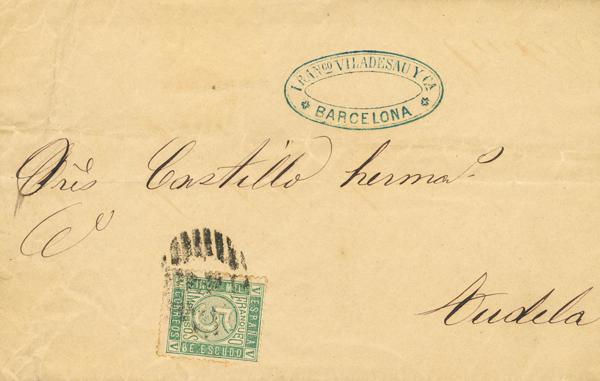 FRANCO VILADESAU Y CA
BARCELONA
Sres Castillo hermos
Tudela
CORREOS
ESPAÑA
FRANQUEO
IMPRESOS
5
DE ESCUDO